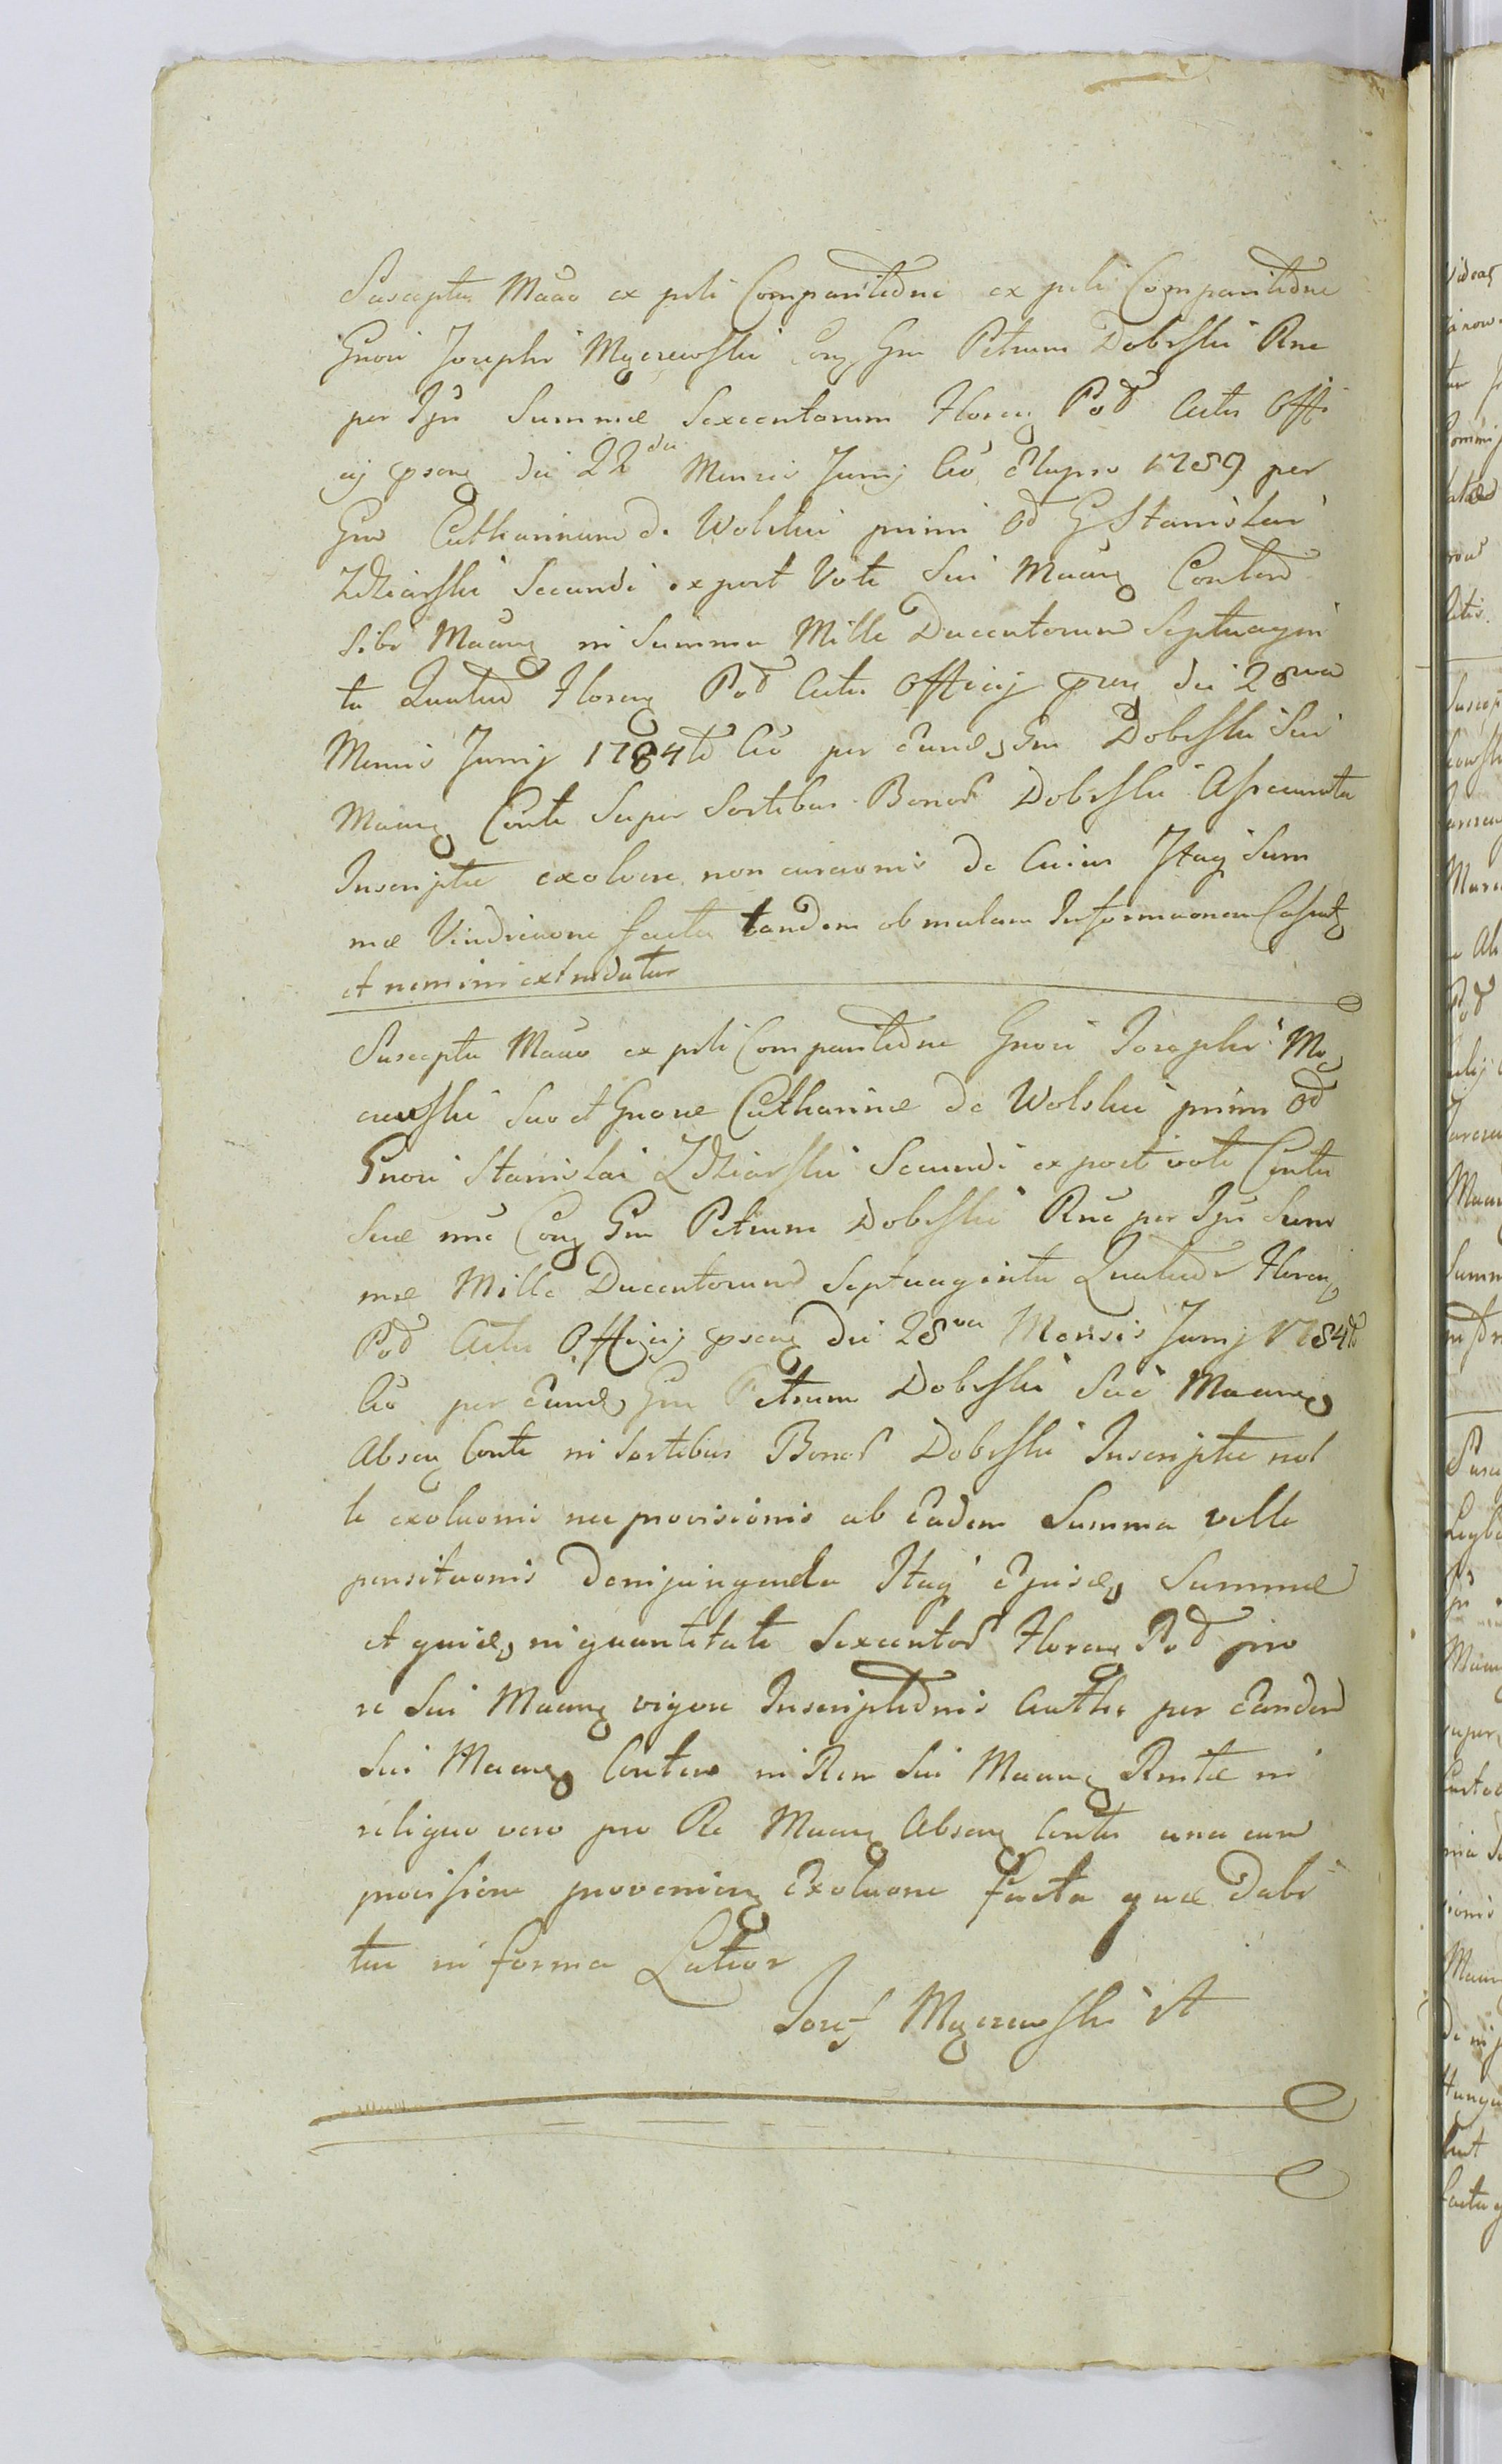 Suscepta Mãao ex psti Comparitiõne ex psti Comparitiõne
Gnosi Josephi Myczewski Cong Gm Petrum Dobrski Rne
per Ips Summæ Sexcentorum Floren Pol Actis Offi
cij psen die 22da Mensis Junij Aõ Elapso 1789 per
Gm Catharinam de Wolskie primi Od G Stanislai
Zdziarski Secundi expost Voti Sui Mãan Contem
sibi Mãan in Summa Mille Ducentorum Septuagin
ta Quatuor Floren Pol Actis Officij psen die 28va
Mensis Junij 1784to Aõ per Eund Gm Dobrski Sui
Maan Conte Super Sortibus Bonor Dobrski Assecurata
Inscripta exolvere non curaonis de Cuius Itaq Sum
mæ Vindicaone facta tandem ob malam Informaonem Cassat
et nemini extradatur
Suscepta Mãao ex psti Comparitiõne Gnosi Josephi My
czewski Suo et Gnosæ Catharinæ de Wolskie primi Od
Gnosi Stanislai Zdziarski Secundi expost voti Contis
Suæ mẽ Cong Gm Petrum Dobrski Rnẽ per Ips Sum
mæ Mille Ducentorum Septuaginta Quatuor Floren
Pol Actis Officij psen die 28va Mensis Junij 1784to
Aõ per Eund Gm Petrum Dobrski Sui Maan
Absen Conte in Sortibus Bonor Dobrski Inscriptæ nol
le exoluonis nec provisionis ab Eadem Summa velle
pensitaonis Itaq Ejusd Summæ
et quid in quantitate Sexcentor Floren Pol pro
re Sui Maan vigore Inscriptiõnis Auth per Eandem
Sui Maan Contem in Rem Sui Maan in
reliquo vero pro Re Maan Absen Contis una cum
provisione provenien Exoluone facta quæ Dabi
tur in forma Latior
Jozef Myczewski